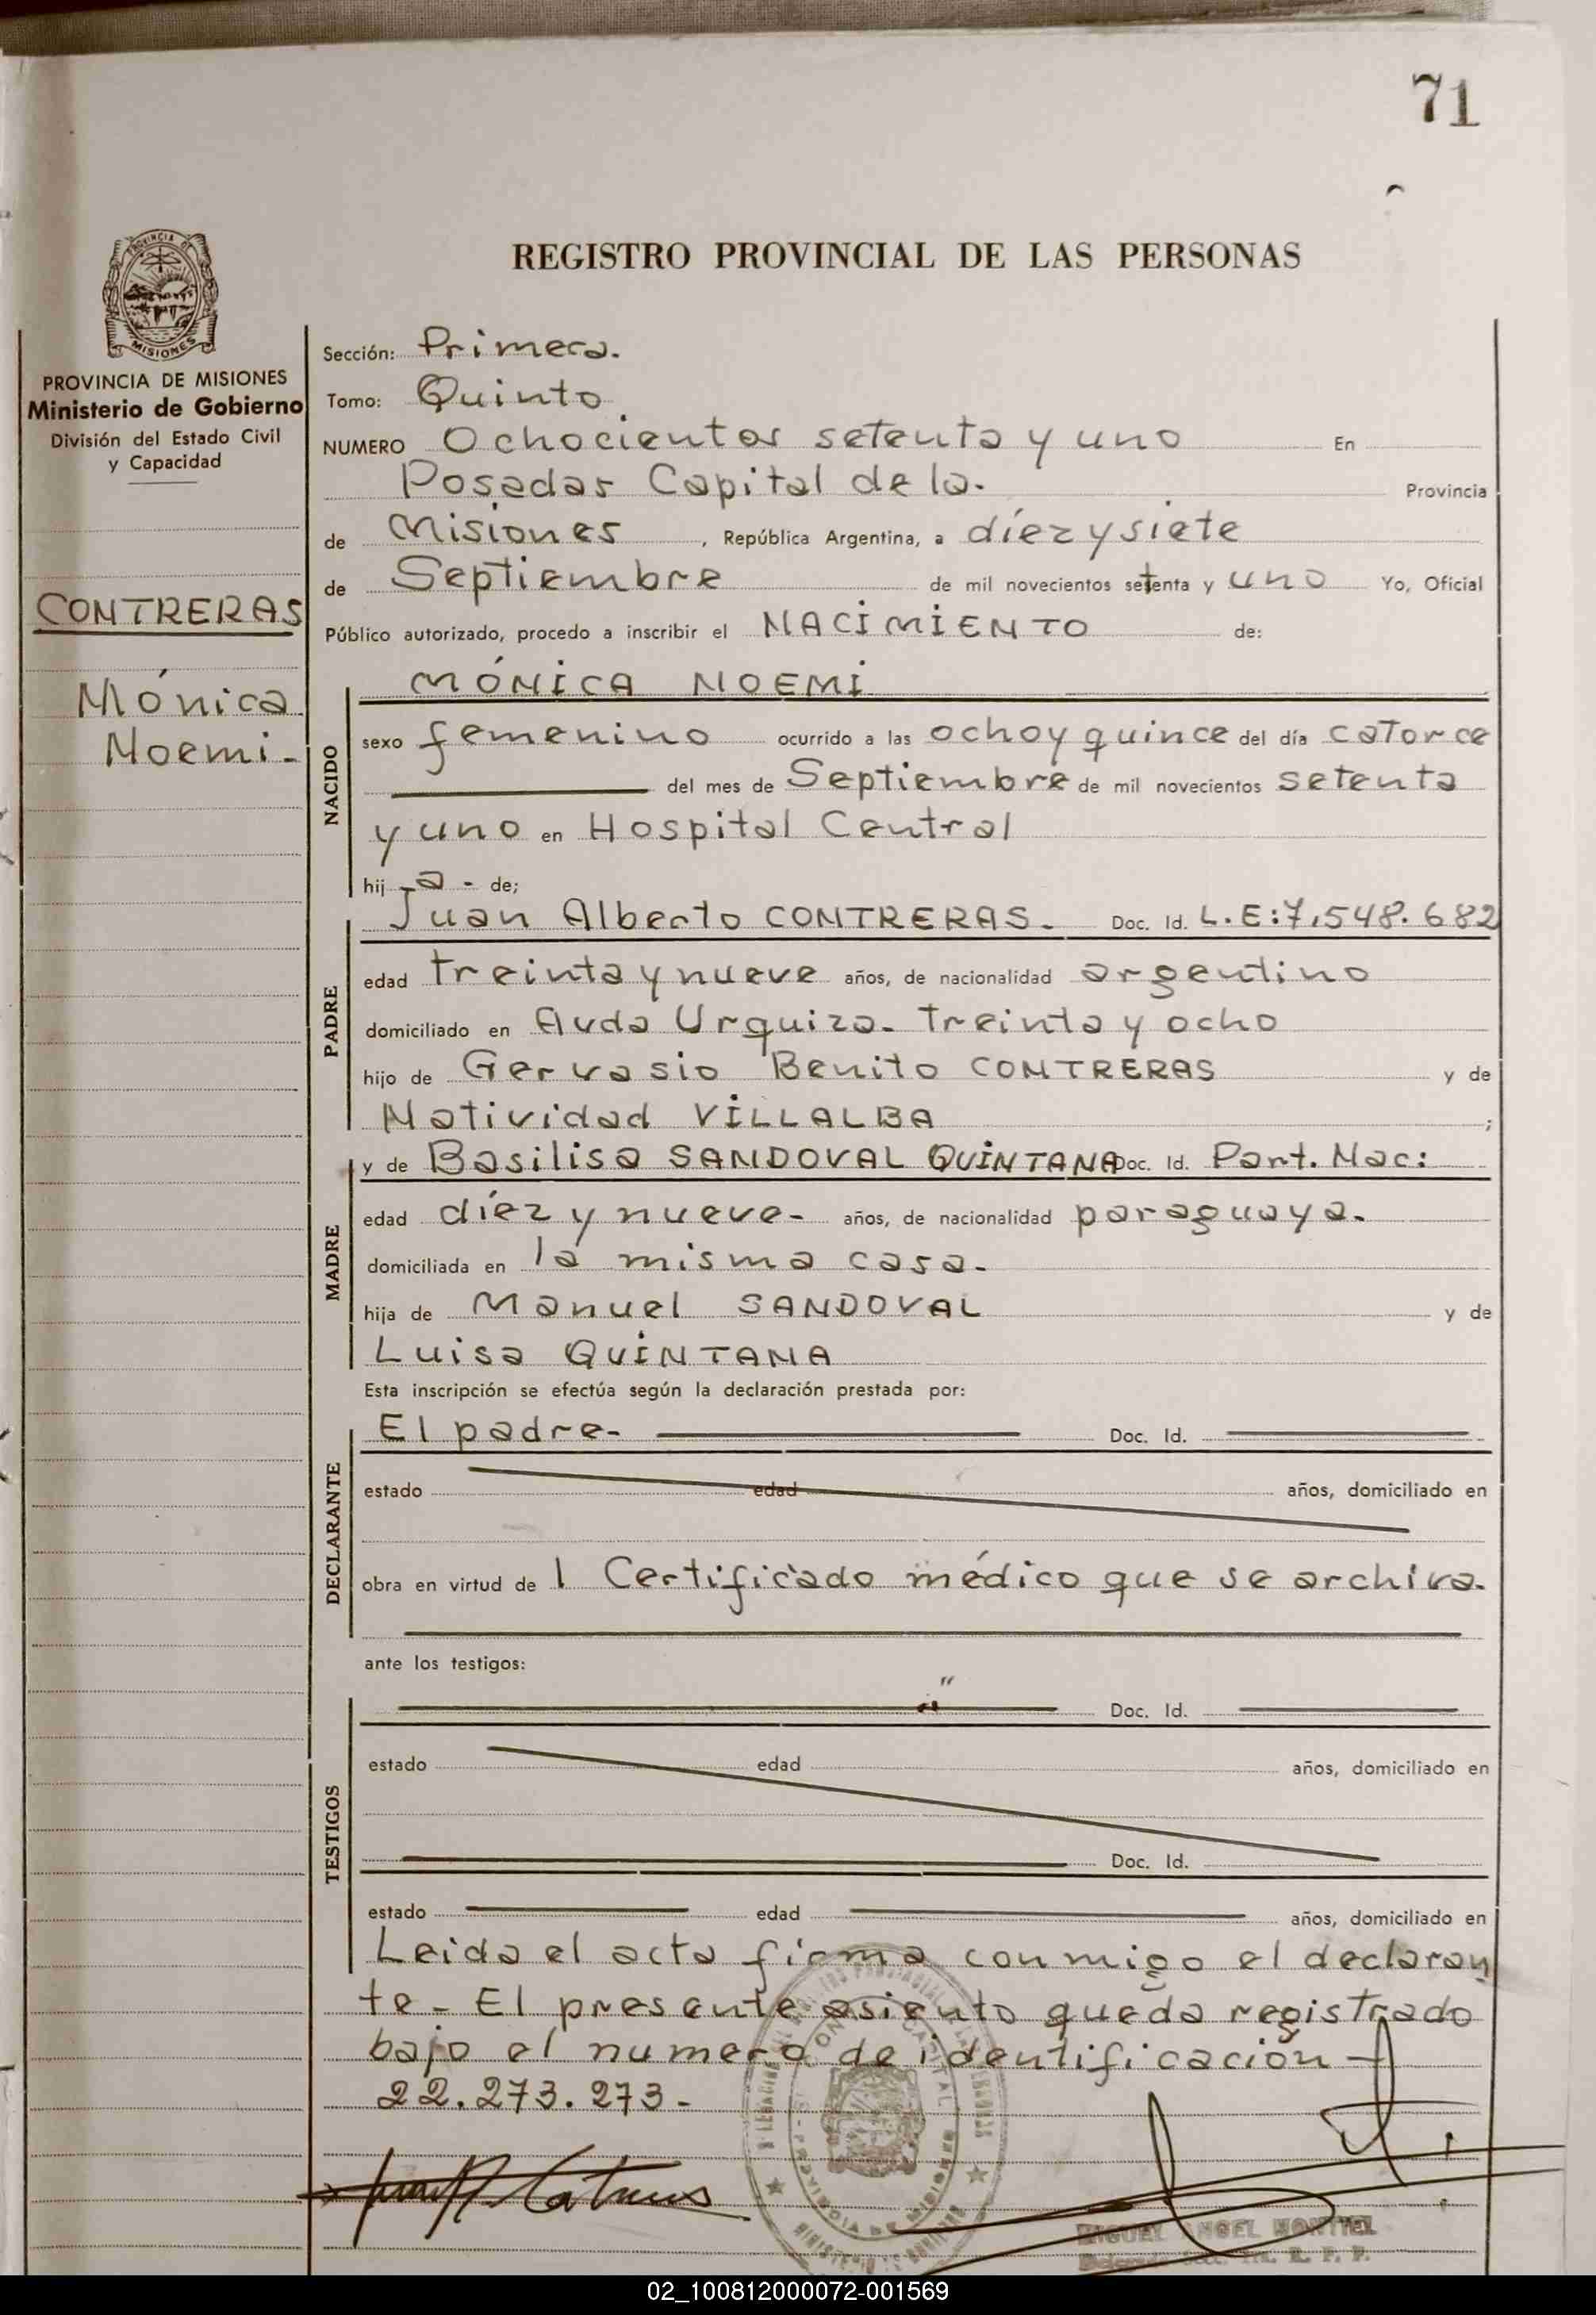 71
REGISTRO PROVINCIAL DE LAS PERSONAS
PROVINCIA DE
MISIONES
PROVINCIA DE MISIONES
Ministerio de Gobierno
División del Estado Civil
y Capacidad
CONTRERAS
Mónica
Noemi-
Sección: Primera.
Tomo: Quinto
NUMERO Ochocientos setenta y uno En
Posadas Capital de la. Provincia
de Misiones, República Argentina, a díez y siete
de Septiembre de mil novecientos setenta y uno Yo, Oficial
Público autorizado, procedo a inscribir el NACIMIENTO de:
MÓNICA NOEMI
NACIDO
sexo femenino ocurrido a las ocho y quince del día catorce
del mes de Septiembre de mil novecientos setenta
y uno en Hospital Central
hij a - de;
PADRE
Juan Alberto CONTRERAS. Doc. Id. L.E:7.548.682
edad treinta y nueve años, de nacionalidad argentino
domiciliado en Avda Urquiza. treinta y ocho
hijo de Gervasio Benito CONTRERAS y de
Natividad VILLALBA ;
MADRE
y de Basilisa SANDOVAL QUINTANA Doc. Id. Part. Nac:
edad díez y nueve- años, de nacionalidad paraguaya.
domiciliada en la misma casa.
hija de Manuel SANDOVAL y de
Luisa QUINTANA
Esta inscripción se efectúa según la declaración prestada por:
DECLARANTE
El padre- Doc. Id.
estado edad años, domiciliado en
obra en virtud de 1 Certificado médico que se archiva.
ante los testigos:
TESTIGOS
" Doc. Id.
estado edad años, domiciliado en
Doc. Id.
estado edad años, domiciliado en
Leida el acta firma conmigo el declaran
te- El presente asiento queda registrado
bajo el numero de identificación-
22.273.273-
MIGUEL ANGEL MONTIEL
R. P. P.
02_100812000072-001569